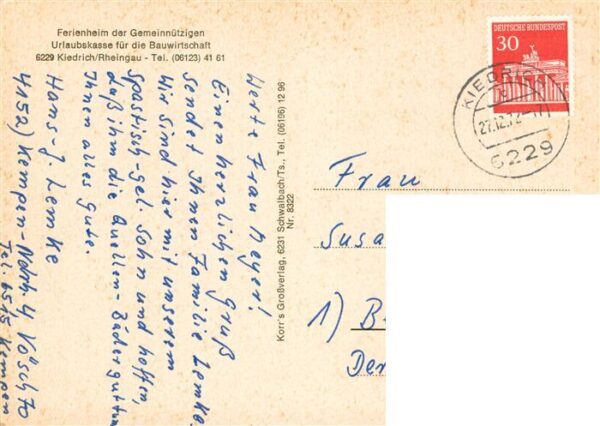 Ferienheim der Gemeinnützigen
Urlaubskasse für die Bauwirtschaft
6229 Kiedrich/Rheingau - Tel. (06123) 41 61
DEUTSCHE BUNDESPOST
30
KIEDRICH
27.12.72
6229
Werte Frau Meyer!
Einen herzlichen Gruß
sendet Ihnen Familie Lemke.
Wir sind hier mit unserem
Spastisch-gel. Sohn und hoffen,
daß ihm die Quellen-Bäder gut tun
Ihnen alles gute.
Hans-J. Lemke
4152) Kempen-Ndrh. 4
Tel. 6515 Kempen
Korr's Großverlag, 6231 Schwalbach/Ts., Tel. (06196) 12 96
Nr. 8322
Frau
Susa
1) B
Der